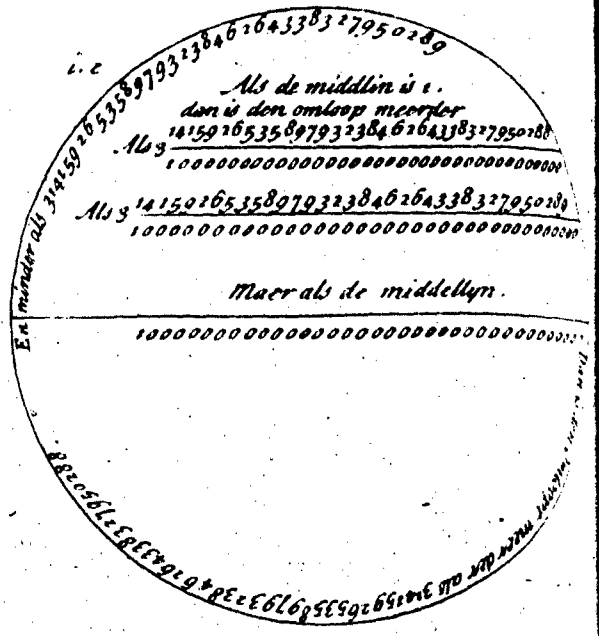 En minder als 314159265358979323846264338327950289
i. e
Als de middlin is 1.
dan is den omloop meerder
14159265358979323846264338327950288
Als 3
100000000000000000000000000000000000
14159265358979323846264338327950289
Als 3
100000000000000000000000000000000000
Maer als de middellyn.
100000000000000000000000000000000000
meer der als 314159265358979323846264338327950288.